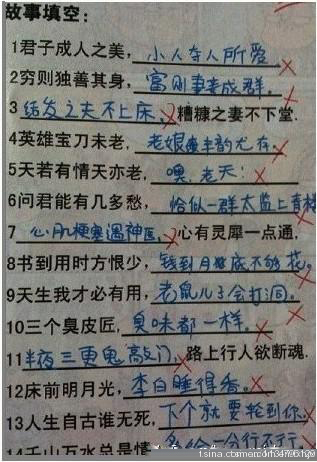 故事填空：
1君子成人之美，小人夺人所爱
2穷则独善其身，富则妻妾成群。
3结发之夫不上床，糟糠之妻不下堂.
4英雄宝刀未老，老娘风韵尤存。
5天若有情天亦老，噢，老天！
6问君能有几多愁，恰似一群太监上青楼
7心肌梗塞遇神医，心有灵犀一点通，
8书到用时方恨少，钱到月底不够花。
9天生我才必有用，老鼠儿子会打洞。
10三个臭皮匠，臭味都一样。
11半夜三更鬼敲门，路上行人欲断魂.
12床前明月光，李白睡得香。
13人生自古谁无死，下个就要轮到你.
14千山万水总是情，多给一分行不行。